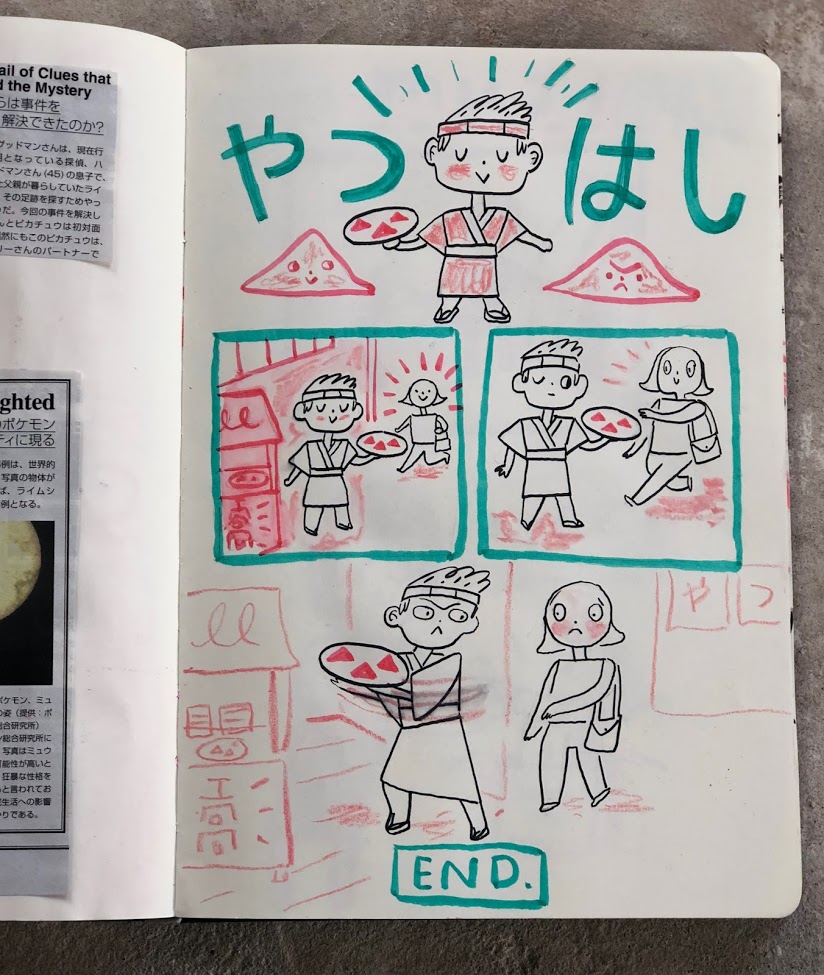 ail of Clues that
d the Mystery
らは事件を
解決できたのか?
グッドマンさんは、現在行
となっている探偵、ハ
ドマンさん (45) の息子で、
た父親が暮らしていたライ
その足跡を探すためやっ
だ。今回の事件を解決し
んとピカチュウは初対面
然にもこのピカチュウは、
リーさんのパートナーで
ghted
のポケモン
ティに現る
例は、世界的
写真の物体が
ば、ライムシ
例となる。
ポケモン、ミュ
の姿(提供:ポ
総合研究所)
ン総合研究所に
写真はミュウ
可能性が高いと
狂暴な性格を
ると言われてお
民生活への影響
かりである。
やつはし
やつ
END.